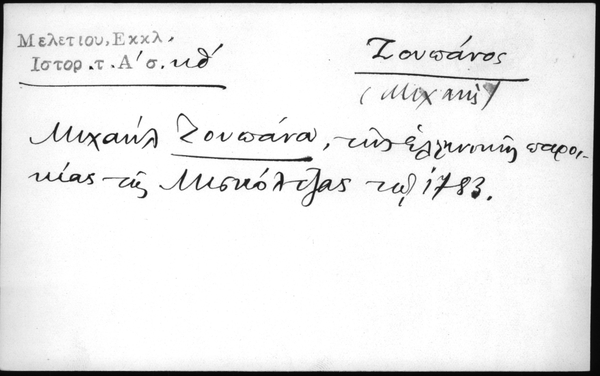 Μελετίου, Εκκλ.
Ιστορ.τ.Α'σ.κθ'
Ζουπάνος
(Μιχαήλ)
Μιχαήλ Ζουπάνα, της ελληνικής παροι-
κίας της Μισκόλτζας τω 1783.